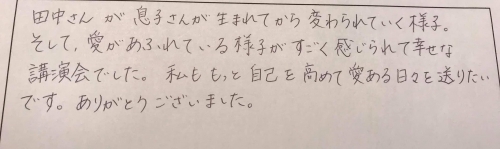 田中さんが息子さんが生まれてから変わられていく様子。
そして、愛があふれている様子がすごく感じられて幸せな
講演会でした。私ももっと自己を高めて愛ある日々を送りたい
です。ありがとうございました。